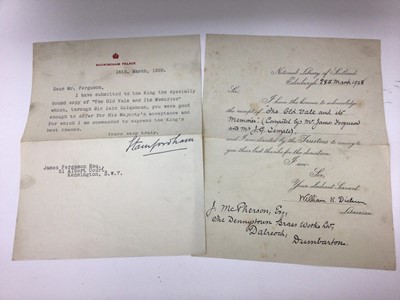 BUCKINGHAM PALACE
March, 1929.
Dear Mr. Ferguson,
I have submitted to the King the specially
bound copy of "The Old Vale and Its Memories"
which, through Sir Iain Colquhoun, you were good
enough to offer for His Majesty's acceptance and
for which I am commanded to express the King's
best thanks.
Yours very truly,
Stamfordham
James Ferguson Esq.,
Albert Court,
Kensington, S.W.7.
National Library of Scotland
Edinburgh, March 1928
Sir
I have the honour to acknowledge
the receipt of "The Old Vale and its
Memories" (Compiled by Mr. James Ferguson
and Mr J. G. Temple).
and I am directed by the Trustees to convey to
you their best thanks for the donation.
I am
Sir,
Your obedient Servant
William K. Dickson
Librarian
J. McPherson, Esq.,
The Dennystown Brass Works Ltd,
Dalreoch,
Dumbarton.